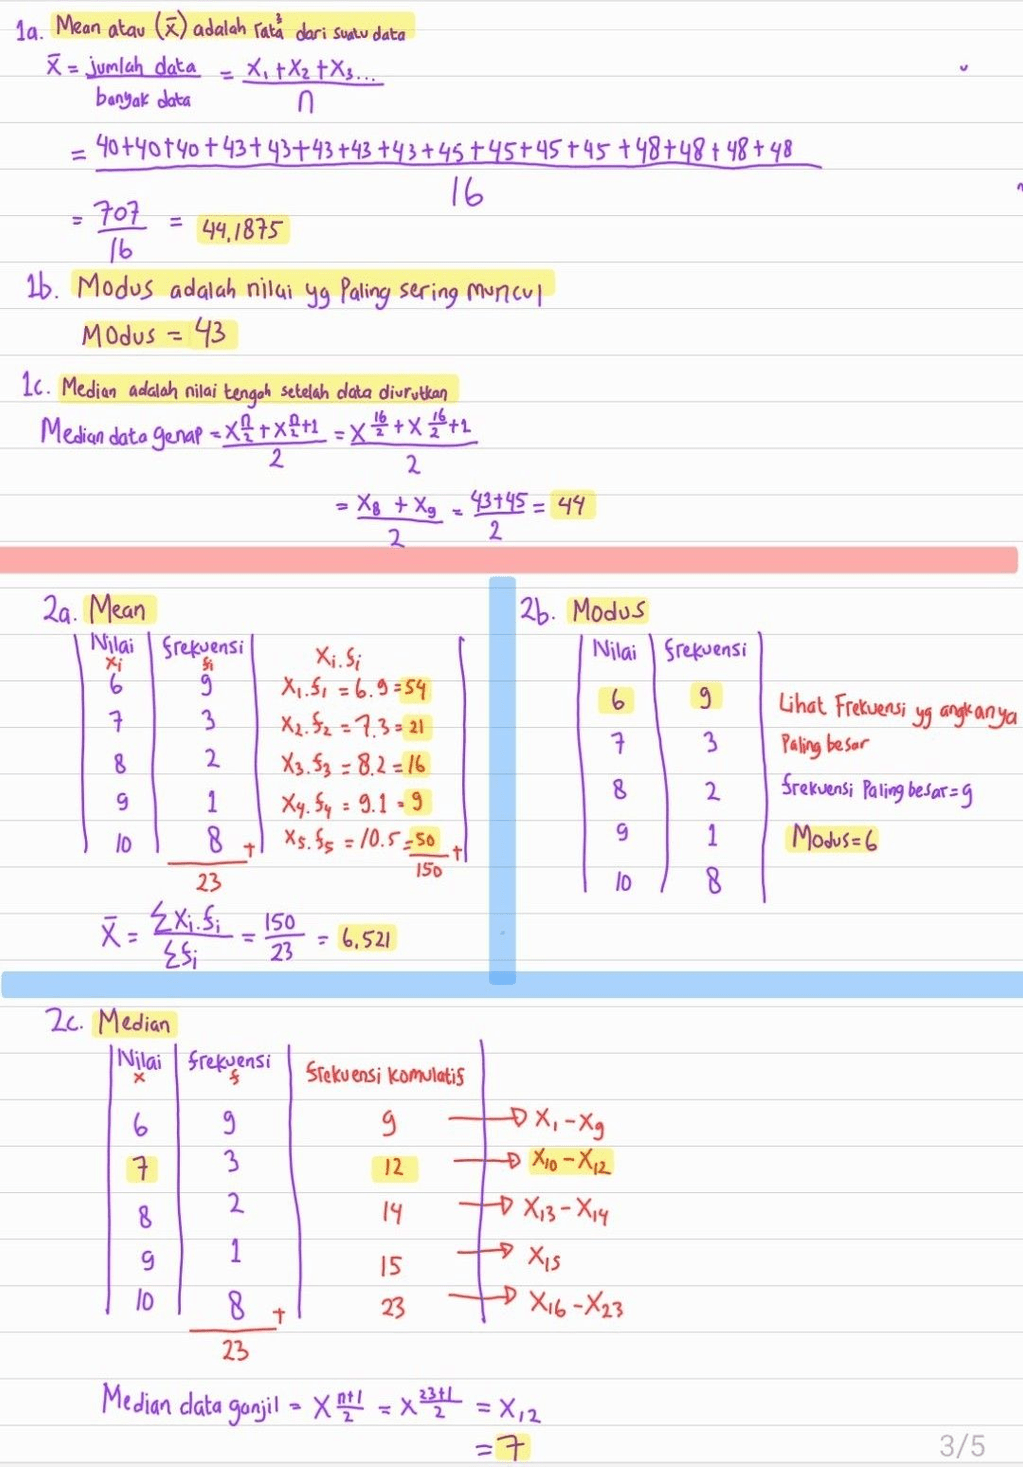 1a. Mean atau (x̄) adalah rata² dari suatu data
x̄ = jumlah data / banyak data = x₁ + x₂ + x₃... / n
= 40+40+40+43+43+43+43+43+45+45+45+45+48+48+48+48 / 16
= 707/16 = 44,1875
1b. Modus adalah nilai yg Paling sering muncul
Modus = 43
1c. Median adalah nilai tengah setelah data diurutkan
Median data genap = x n/2 + x n/2+1 / 2 = x 16/2 + x 16/2+1 / 2
= x₈ + x₉ / 2 = 43+45 / 2 = 44
2a. Mean
Nilai frekuensi
xi fi xi.fi
6 9 x₁.f₁ = 6.9 = 54
7 3 x₂.f₂ = 7.3 = 21
8 2 x₃.f₃ = 8.2 = 16
9 1 x₄.f₄ = 9.1 = 9
10 8 + x₅.f₅ = 10.5 = 50 +
23 150
x̄ = Σxi.fi / Σfi = 150/23 = 6,521
2b. Modus
Nilai frekuensi
6 9
7 3
8 2
9 1
10 8
Lihat Frekuensi yg angkanya
Paling besar
frekuensi Paling besar = 9
Modus = 6
2c. Median
Nilai frekuensi frekuensi komulatif
x f
6 9 9 → x₁ - x₉
7 3 12 → x₁₀ - x₁₂
8 2 14 → x₁₃ - x₁₄
9 1 15 → x₁₅
10 8 + 23 → x₁₆ - x₂₃
23
Median data ganjil = x n+1/2 = x 23+1/2 = x₁₂
= 7
3/5